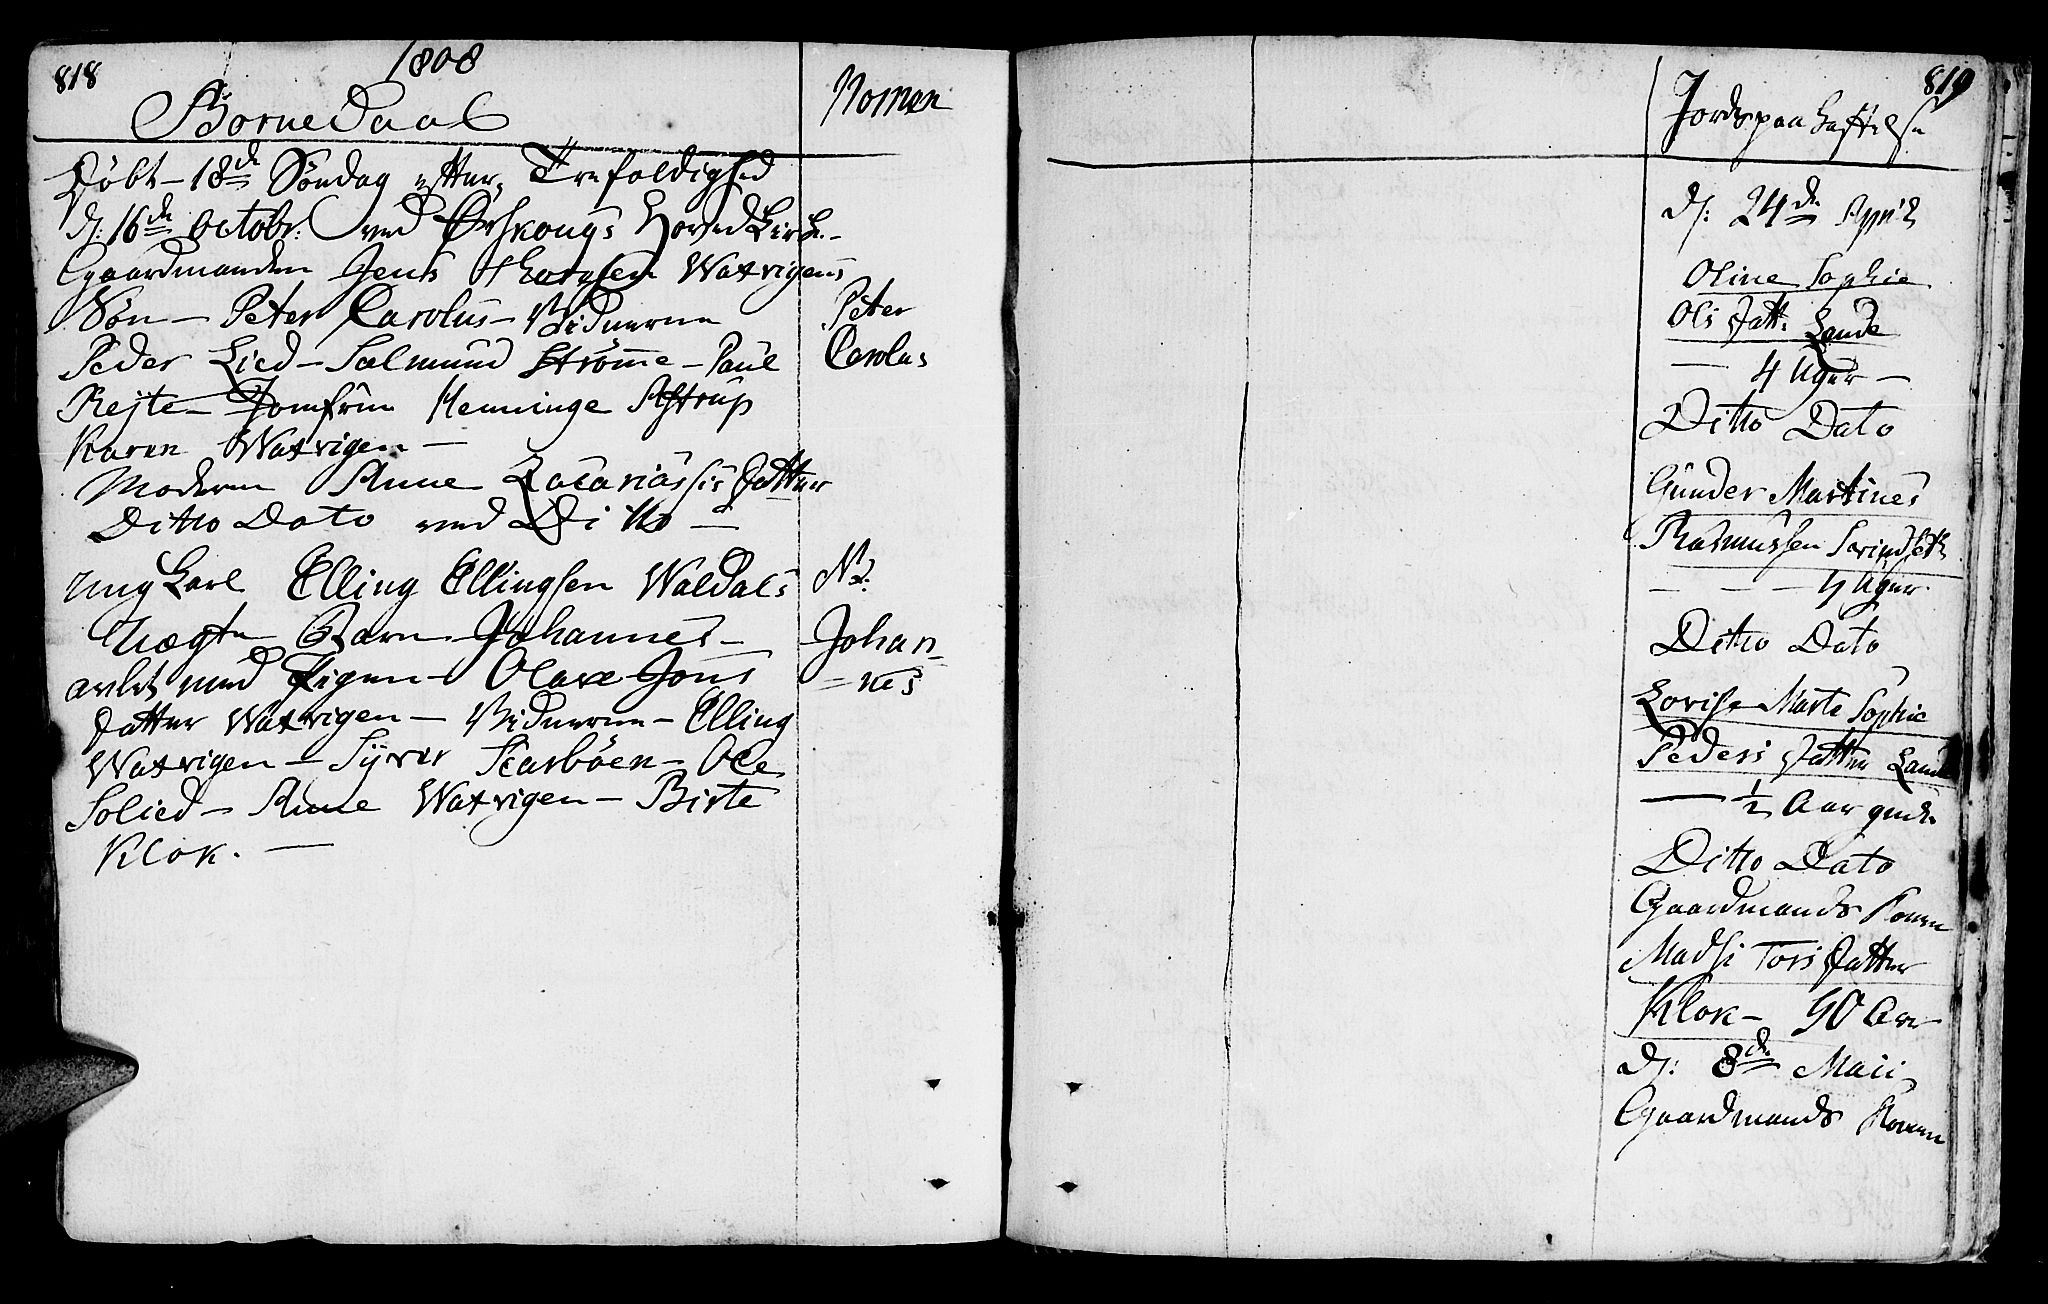 818
1808
Børne Daab
Nomen
Døbt - 18de Søndag efter Trefoldighed
d: 16de Octobr: ved Ørskougs Hoved Kirke -
Gaardmanden Jens Watrigens
Søn - Peter Carolus - Vidnerne
Peder Lied - Salmund Strømme - Paul
Rejte - Jomfru Henninge Astrup
Karen Watrigen -
Moderen Anne Zacariassis Datter
Ditto Dato ved Ditto -
Peter
Carolus
ung Karl Elling Ellingsen Waldals
Uægte Barn Johannes -
avlet med Pigen - Olave Jons
Datter Watrigen - Vidnerne - Elling
Watrigen - Syver Scarbøen - Ole
Solied - Anne Watrigen - Birte
Klok. -
N1.
Johan=
=nes
819
Jords paa Kastelse
d: 24de April
Oline Sophie
Ols Datt: Lande
- 4 Uger -
Ditto Dato
Gunder Martines
Rasmussen
- - - 4 Uger
Ditto Dato
Lovise Marte Sophie
Peders Datter Lande
- 1/2 Aar gml.
Ditto Dato
Gaardmands Konen
Madsi Tors Datter
Klok - 90 Aar
d: 8de Maii
Gaardmands Konen